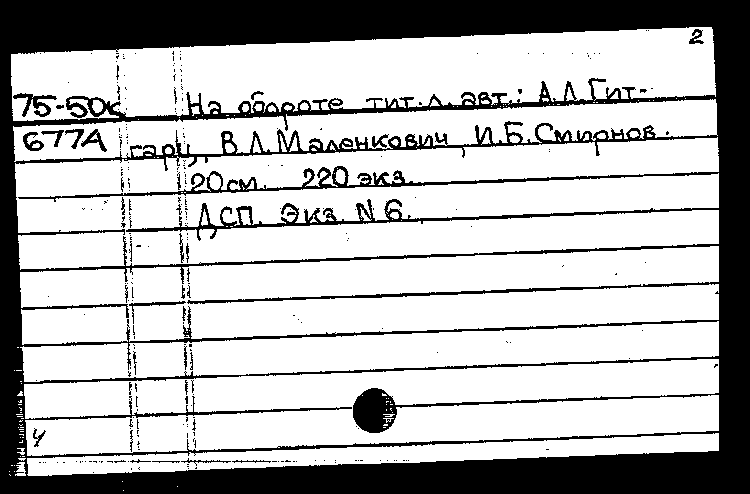 2
75-50к На обороте тит. л. авт.: А.Л.Гит-
677А гарц, В.Л.Маленкович, И.Б.Смирнов.
20см. 220 экз.
ДСП. Экз. N 6.